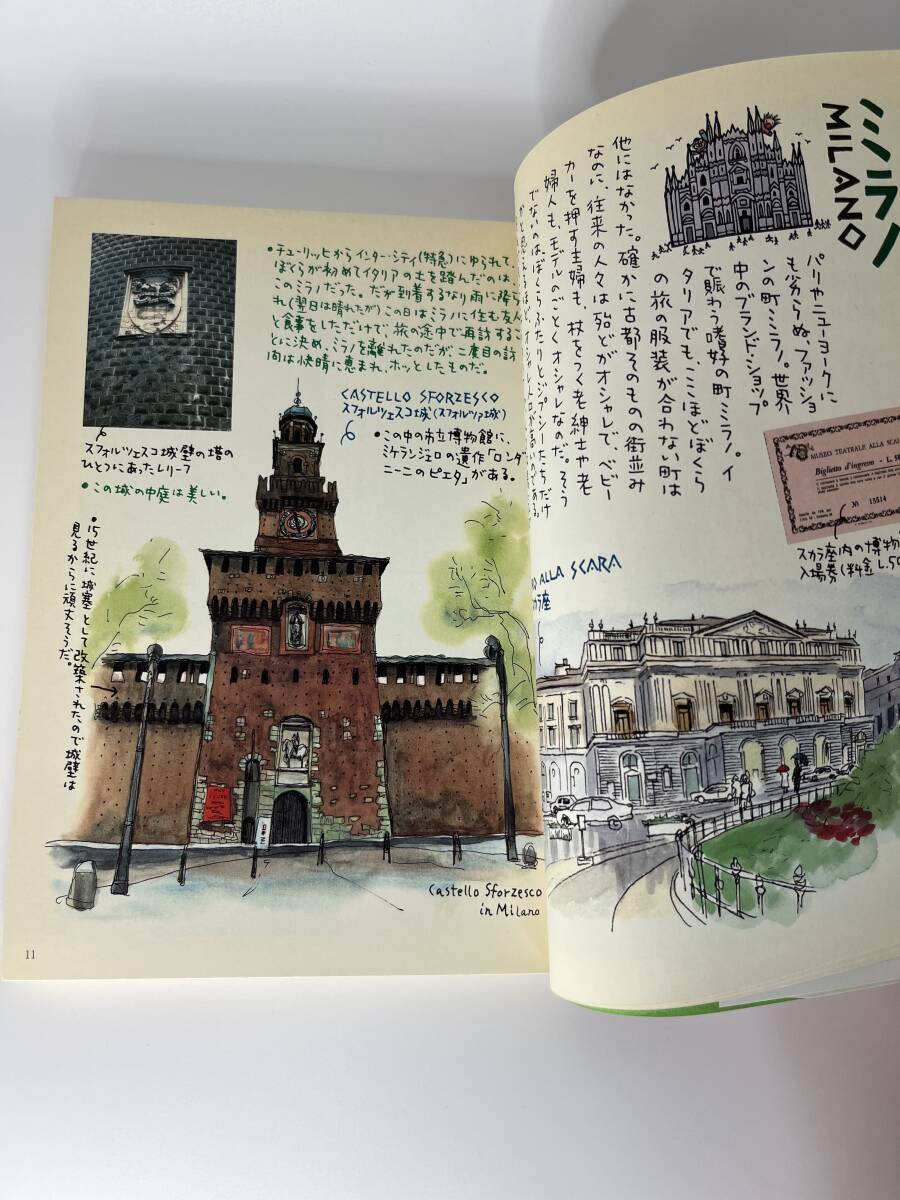 ●チューリッヒからインター・シティ(特急)にゆられて、
ぼくらが初めてイタリアの土を踏んだのは、
このミラノだった。だが到着するなり雨に降ら
れ(翌日は晴れたが)この日はミラノに住む友人
と食事をしただけで、旅の途中で再訪するこ
とに決め、ミラノを離れたのだが、二度目の訪
問は快晴に恵まれ、ホッとしたものだ。
スフォルツェスコ城壁の塔の
ひとつにあったレリーフ
●この城の中庭は美しい。
CASTELLO SFORZESCO
スフォルツェスコ城(スフォルツァ城)
●この中の市立博物館に、
ミケランジェロの遺作「ロンダ
ニーニのピエタ」がある。
●15世紀に城塞として改築されたので城壁は
見るからに頑丈そうだ。
Castello Sforzesco
in Milano
11
ミラノ
MILANO
パリやニューヨークに
も劣らぬ、ファッショ
ンの町ミラノ。世界
中のブランド・ショップ
で賑わう嗜好の町ミラノ。イ
タリアでも、ここほどぼくら
の旅の服装が合わない町は
他にはなかった。確かに古都そのものの街並み
なのに、往来の人々は殆どがオシャレで、ベビー
カーを押す主婦も、杖をつく老紳士や老
婦人も、モデルのごとくオシャレなのだ。そう
でないのは、ぼくらふたりとジプシーたちだけ
MUSEO TEATRALE ALLA SCAL
Biglietto d'ingresso - L. 50
№ 15514
スカラ座内の博物
入場券(料金L.50
ALLA SCARA
カラ座